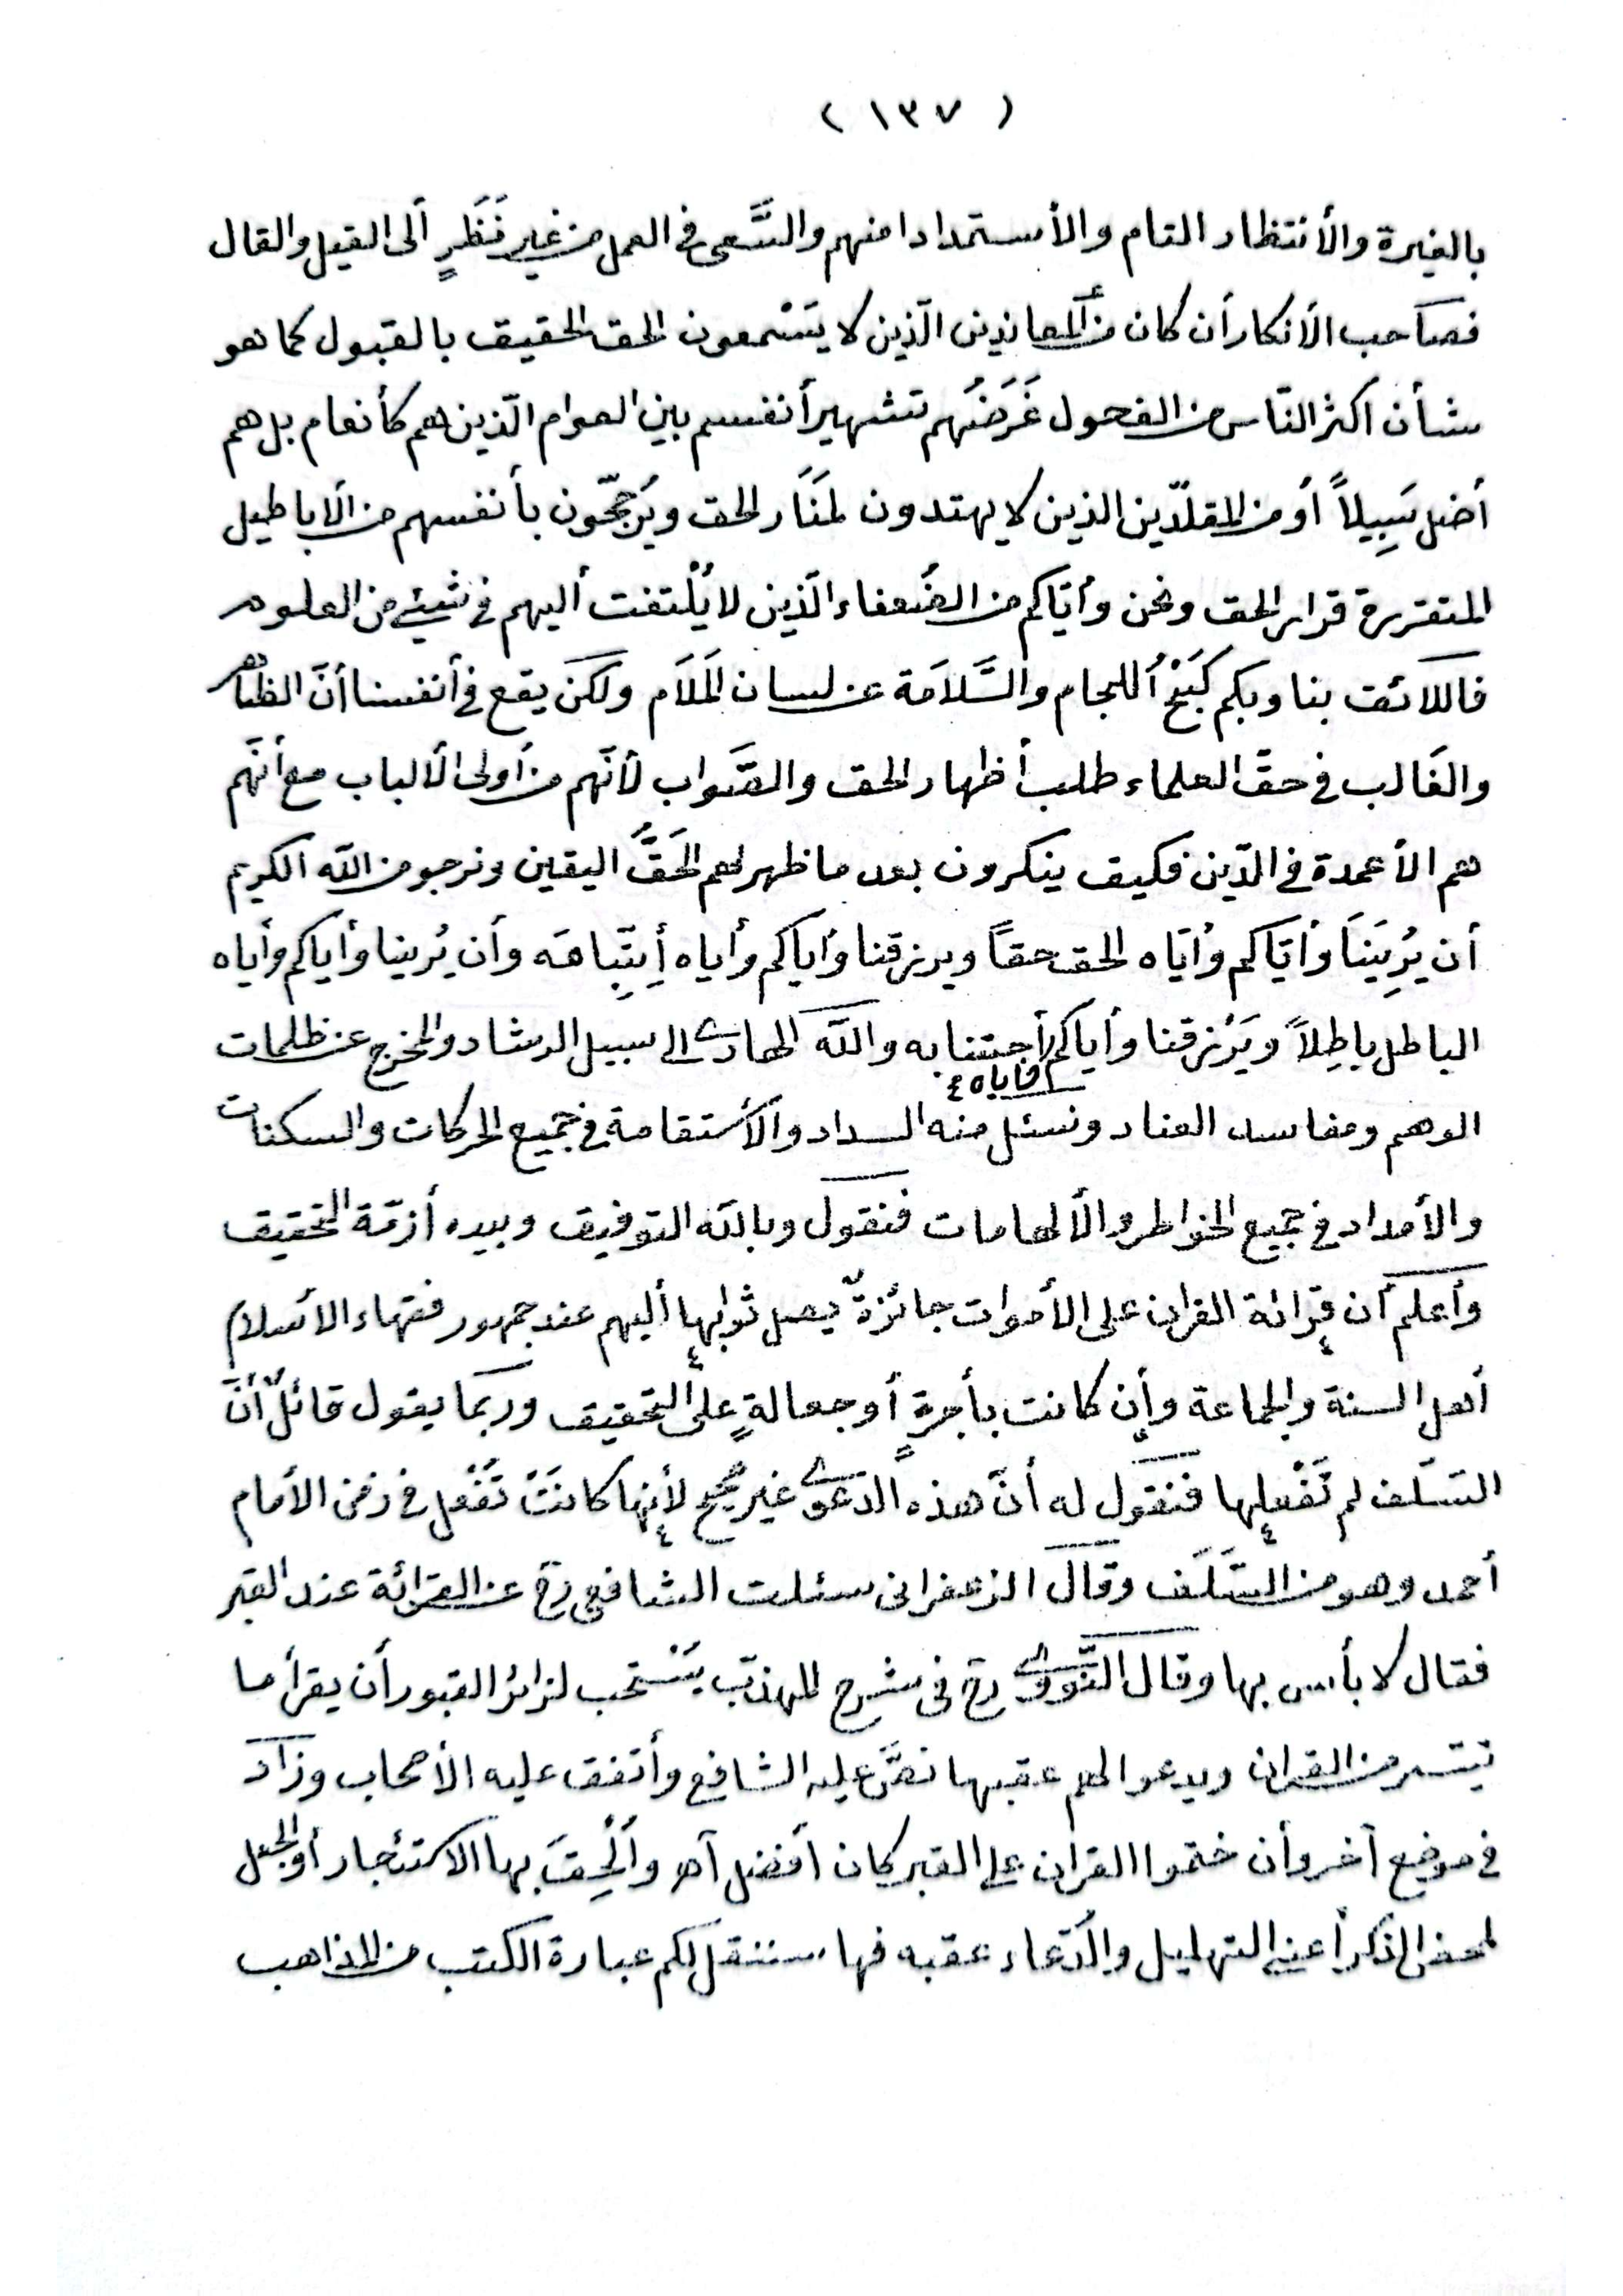 ( ١٣٧ )
بالغيرة والأنتظار التام والأستمدادا منهم والسَّعى فى العمل من غير نَظَرٍ ألى القيل والقال
فصاحب الأنكار أن كان من المعاندين الّذين لا يَسْمعون الحق الحقيق بالقبول كما هو
شأن اكثر النّاس من الفحول غَرَضُهم تشهير أنفسهم بين العوام الّذين هم كأنعام بل هم
أضل سَبِيلاً أو من المقلّدين الذين لا يهتدون لمَنَار الحق ويَرجّحون بأنفسهم من الأباطيل
المتقررة قرار الحق ونحن وأيّاكم من الضُعفاء الّذين لا يُلْتفت أليهم فى شيئ من العلوم
فاللائق بنا وبكم كَبْحُ اللجام والسَّلاَمة عن لسان المَلاَم ولكن يقع فى أنفسنا أنّ الظاهر
والغالب فى حقّ العلماء طلب أظهار الحق والصَّواب لأنّهم من أولى الألباب مع أنّهم
هم الأعمدة فى الدّين فكيف ينكرون بعد ما ظهر لهم الحَقُّ اليقين ونرجو من الله الكريم
أن يُرِيَنَا وأيّاكم وأيّاه الحق حقاً ويرزقنا وأياكم وأياه أِتِّبَاعَه وأن يُرينا وأياكم وأياه
الباطل باطِلاً ويَرْزقنا وأياكم أجتنابه والله الهادى الى سبيل الرشاد والمخرج عن ظلمات
وأياه
الوهم ومفاسد العناد ونسئل منه السداد والأستقامة فى جميع الحركات والسكنات
والأمداد فى جميع الخواطر والألهامات فنقول وبالله التوفيق وبيده أزمّة التحقيق
وأعلم أن قرائة القران على الأموات جائزةٌ يصل ثوابها أليهم عند جمهور فقهاء الأسلام
أهل السنة والجماعة وأن كانت بأجرةٍ أو جعالةٍ على التحقيق وربما يقول قائلٌ أنَّ
السَلَف لم تَفْعلها فنقول له أنّ هذه الدعوى غير صحيح لأنها كانَتْ تُفْعل فى زمن الأمام
أحمد وهو من السَّلَف وقال الزعفرانى سئلت الشافعى رح عن القرائة عند القبر
فقال لا بأس بها وقال النَّووى رح فى شرح المهذّب يَسْتحب لزائر القبور أن يقرأ ما
تيتسر من القران ويدعو لهم عقبها نصَّ عليه الشافعى وأتفق عليه الأصحاب وزاد
فى موضع آخر وأن ختموا القران على القبر كان أفضل اه وألْحِقَ بها الاستئجار أو الجعل
لمحض الذكر أعنى التهليل والدّعاء عقبه فها سننقل لكم عبارة الكتب من المذاهب